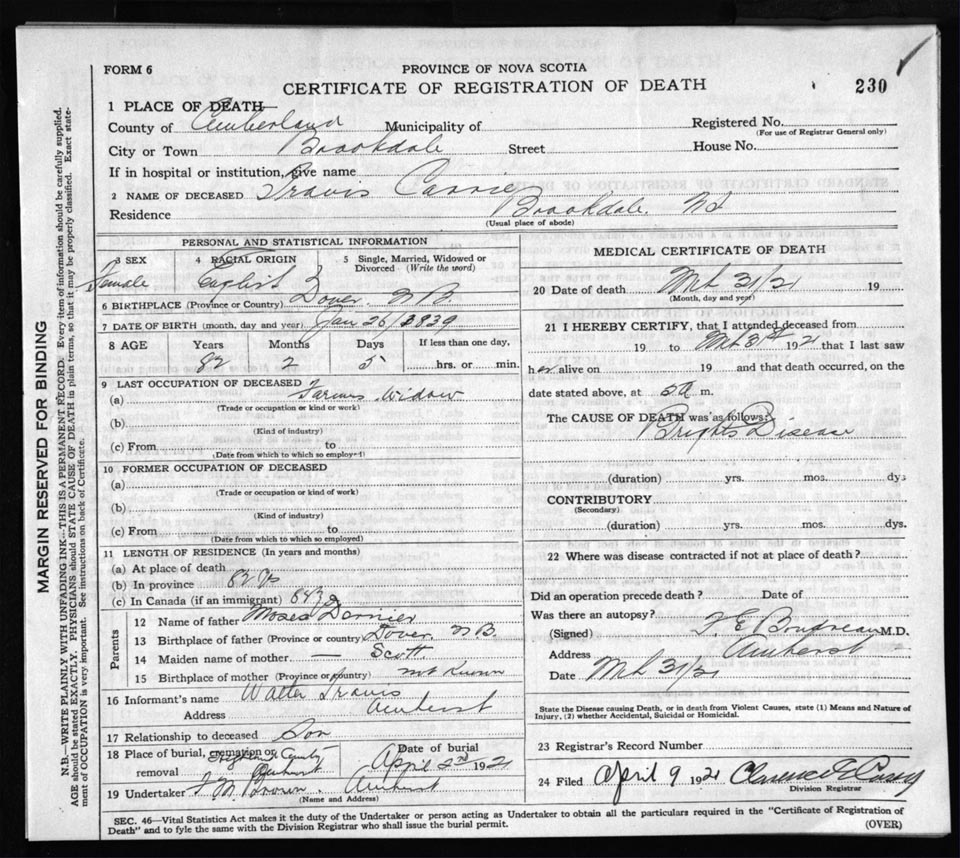 FORM 6
PROVINCE OF NOVA SCOTIA
CERTIFICATE OF REGISTRATION OF DEATH
230
1 PLACE OF DEATH
County of Cumberland Municipality of
Registered No.
(For use of Registrar General only)
City or Town Brookdale Street
House No.
If in hospital or institution, give name
2 NAME OF DECEASED Travis Carrie
Residence Brookdale. NS
(Usual place of abode)
MARGIN RESERVED FOR BINDING
N.B.—WRITE PLAINLY WITH UNFADING INK—THIS IS A PERMANENT RECORD. Every item of information should be carefully supplied.
AGE should be stated EXACTLY. PHYSICIANS should STATE CAUSE OF DEATH in plain terms, so that it may be properly classified. Exact state-
ment of OCCUPATION is very important. See instructions on back of Certificate.
PERSONAL AND STATISTICAL INFORMATION
3 SEX
4 RACIAL ORIGIN
5 Single, Married, Widowed or
Divorced (Write the word)
Female
6 BIRTHPLACE (Province or Country) Dover. N B.
7 DATE OF BIRTH (month, day and year) Jan 26/1839
8 AGE Years Months Days If less than one day,
82 2 5 hrs. or min.
9 LAST OCCUPATION OF DECEASED
(a) Farmers Widow
(Trade or occupation or kind or work)
(b)
(Kind of industry)
(c) From to
(Date from which to which so employed)
10 FORMER OCCUPATION OF DECEASED
(a)
(Trade or occupation or kind of work)
(b)
(Kind of industry)
(c) From to
(Date from which to which so employed)
11 LENGTH OF RESIDENCE (In years and months)
(a) At place of death
(b) In province 82 ys
(c) In Canada (if an immigrant)
Parents
12 Name of father Moses Dornier
13 Birthplace of father (Province or country) Dover N B.
14 Maiden name of mother — Scott
15 Birthplace of mother (Province or country) not known
16 Informant's name Walter Travis
Address Amherst
17 Relationship to deceased Son
18 Place of burial, cremation or
removal
Date of burial
April 2nd 1921
19 Undertaker Brown. Amherst
(Name and Address)
MEDICAL CERTIFICATE OF DEATH
20 Date of death Mch 31/21 19
(Month, day and year)
21 I HEREBY CERTIFY, that I attended deceased from
19 to Mch 31st 1921 that I last saw
her alive on 19 and that death occurred, on the
date stated above, at 5 a m.
The CAUSE OF DEATH was as follows:
Brights Disease
(duration) yrs. mos. dys
CONTRIBUTORY
(Secondary)
(duration) yrs. mos. dys.
22 Where was disease contracted if not at place of death?
Did an operation precede death? Date of
Was there an autopsy?
(Signed) E Boudreau M.D.
Address Amherst
Date Mch 31/21
State the Disease causing Death, or in death from Violent Causes, state (1) Means and Nature of
Injury, (2) whether Accidental, Suicidal or Homicidal.
23 Registrar's Record Number
24 Filed April 9 1921 Clarence
Division Registrar
SEC. 46—Vital Statistics Act makes it the duty of the Undertaker or person acting as Undertaker to obtain all the particulars required in the "Certificate of Registration of
Death" and to fyle the same with the Division Registrar who shall issue the burial permit.
(OVER)